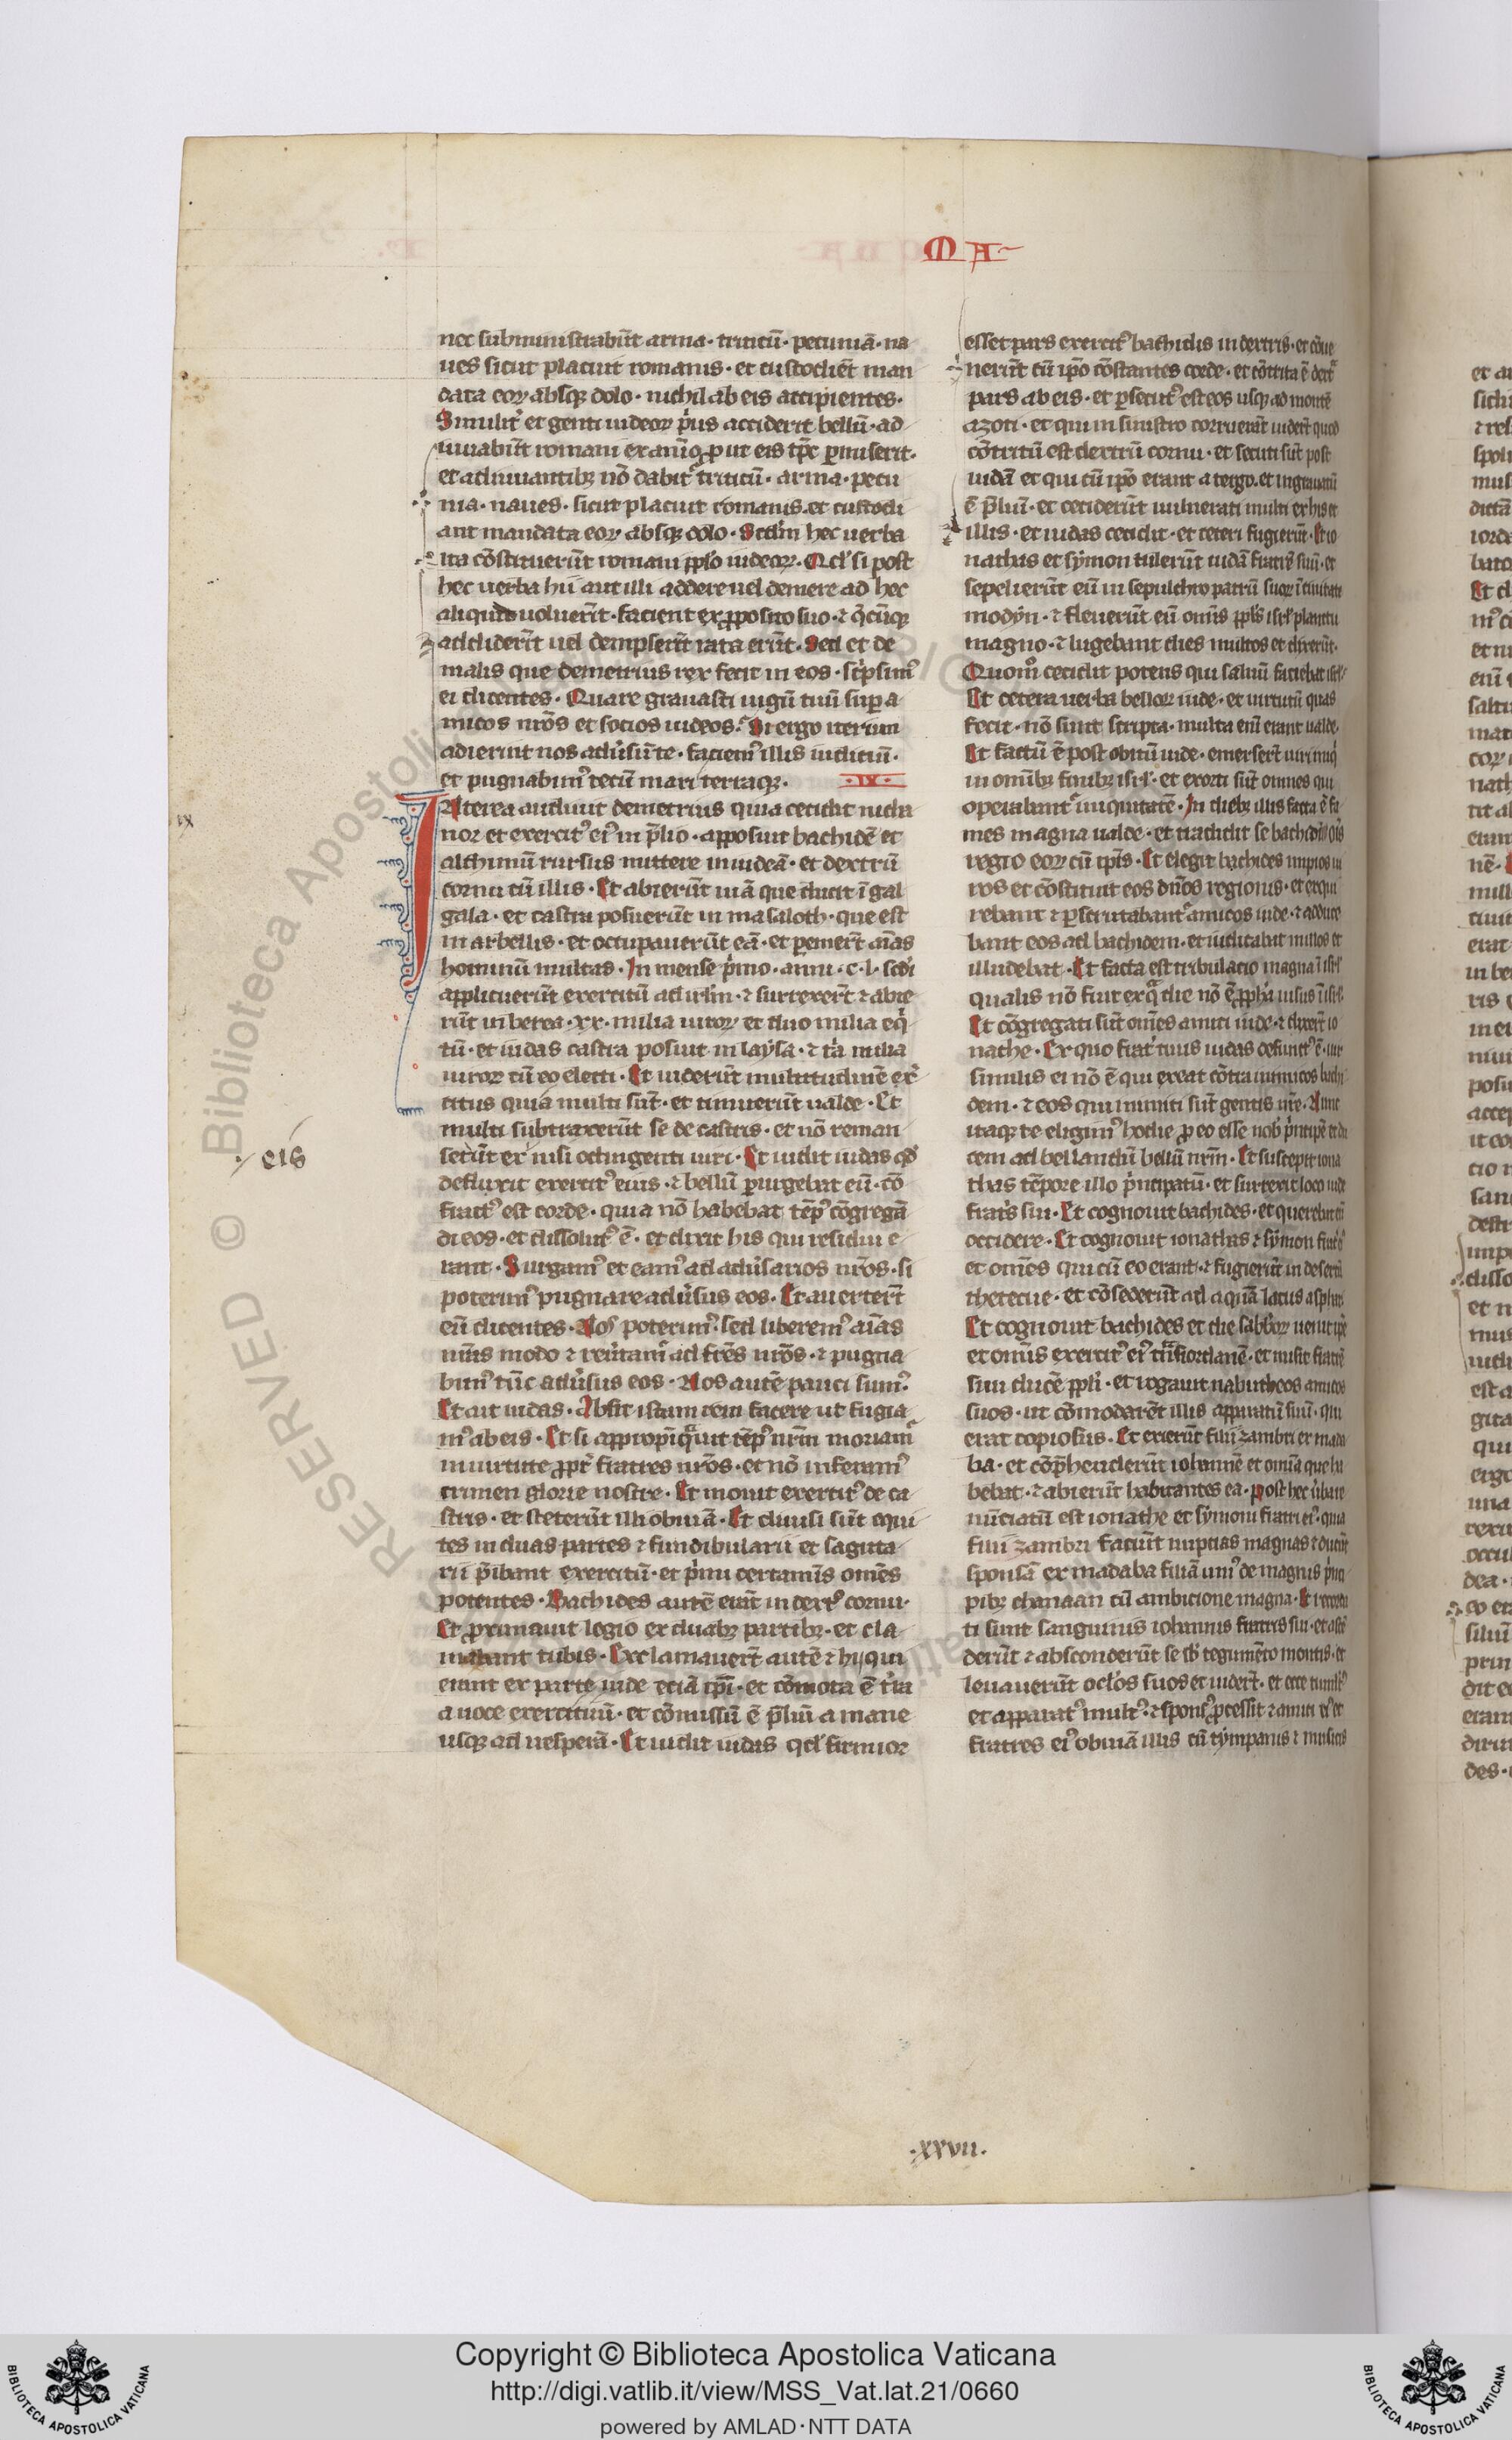 M A
nec subministrabūt arma · triticū · pecuniā · na
ues sicut placuit romanis · et custodiēt man
data eoꝝ absqꝫ dolo · nichil ab eis accipientes ·
Similit̉ et genti iudeoꝝ p̉us acciderit bellū · ad
iuuabūt romani ex aīo ꝓut eis tp̄s ꝑmiserit ·
et adiuuantibꝫ nō dabit᷑ triticū · arma · pecu
nia · naues · sicut placuit romanis · et custodi
ant mandata eoꝝ absqꝫ dolo · Scd̄m hec uerba
ita cōstituerūt romani pp̄lo iudeoꝝ · Qd̓ si post
hec uerba hii aut illi addere uel demere ad hec
aliquid uoluerīt · facient ex ꝓposito suo · ⁊ q̄cūqꝫ
addiderīt uel dempserīt rata erūt · Sed et de
malis que demetrius rex fecit in eos · sc̉psimꝰ
ei dicentes · Quare grauasti iugū tuū suꝑ a
micos nr̄os et socios iudeos · Si ergo iterum
adierint nos adūsū te · faciemꝰ illis iudiciū ·
et pugnabimꝰ tecū mari terraqꝫ · · IX ·
INterea audiuit demetrius quia cecidit nicha
nor et exercitꝰ eiꝰ in p̄lio · apposuit bachidē et
alchimū rursus mittere in iudeā · et dextrū
cornu cū illis · Et abierūt uiā que ducit ī gal
gala · et castra posuerūt in masaloth · que est
in arbellis · et occupauerūt eā · et pemerīt aīas
hominū multas · In mense p̉mo · anni · c · l · scd̓i
applicuerūt exercitū ad irl̄m · ⁊ surrexer̄t ⁊ abie
rūt in berea · xx · milia uiroꝝ et duo milia eq̉
tū · et iudas castra posuit in laysa · ⁊ t̉a milia
uiroꝝ cū eo electi · Et uiderūt multitudinē exer̉
citus quia multi sūt · et timuerūt ualde · Et
multi subtraxerūt se de castris · et nō reman
serūt ex nisi octingenti uiri · Et uidit iudas qd̓
defluxit exercitꝰ eius · ⁊ bellū ꝑurgebat eū · cō
fractꝰ est corde · quia nō habebat tēpꝰ cōgregā
di eos · et dissolutꝰ ē · et dixit his qui residui e
rant · Surgamꝰ et eamꝰ ad adūsarios nr̄os · si
poterimꝰ pugnare adūsus eos · Et auerter̄t
eū dicentes · Nō poterimꝰ · sed liberemꝰ aīas
nr̄as modo ⁊ reūtamꝰ ad fr̄es nr̄os · ⁊ pugna
bimꝰ tūc adūsus eos · Nos autē pauci sumꝰ ·
Et ait iudas · Absit istam rem facere ut fugia
mꝰ ab eis · Et si appropīq̄uit tēpꝰ nr̄m moriamꝰ
in uirtute ꝓpt̉ fratres nr̄os · et nō inferamꝰ
crimen glorie nostre · Et mouit exercitꝰ de ca
stris · et steterūt illi obuiā · Et diuisi sūt equi
tes in duas partes ⁊ fundibularii et sagita
rii p̄ibant exercitū · et p̉mi certaminis om̄s
potentes · Bachides autē erat in dextꝰ cornu ·
Et ꝓximauit legio ex duabꝫ partibꝫ · et cla
mabant tubis · Exclamauer̄t autē ⁊ hij qui
erant ex parte iude etiā ip̄i · et cōmota ē t̉ra
a uoce exercituū · et cōmissū ē p̄liū a mane
usqꝫ ad uesperā · Et uidit iudas qd̓ firmior
eis
ix
esset pars exercitꝰ bachidis in dextris · et cōue
nerūt cū ip̄o cōstantes corde · et cōtrita ē dext̉a
pars ab eis · et ꝑsecutꝰ est eos usqꝫ ad montē
azoti · et qui in sinistro cornu erāt uider̄t quod
cōtritū est dextrū cornu · et secuti sūt post
iudā et qui cū ip̄o erant a tergo · et ingrauatū
ē p̄liū · et ceciderūt uulnerati multi ex his et
illis · et iudas cecidit · et ceteri fugierūt · Et io
nathas et symon tulerūt iudā fratrē suū · et
sepelierūt eū in sepulchro patrū suoꝝ ī ciuitate
modyn · ⁊ fleuerūt eū om̄is pp̄ls isrl̓ planctu
magno · ⁊ lugebant dies multos et dixerūt ·
Quomō cecidit potens qui saluū faciebat isrl̓ ·
Et cetera uerba belloꝝ iude · et uirtutū quas
fecit · nō sunt scripta · multa eni erant ualde ·
Et factū ē post obitū iude · emerser̄t uiri iniq̉
in om̄ibꝫ finibꝫ isrl̓ · et exorti sūt omnes qui
operabant᷑ iniquitatē · In diebꝫ illis facta ē fa
mes magna ualde · et tradidit se bachidi om̄is
regio eoꝝ cū ip̄is · Et elegit bachides impios ui
ros et cōstituit eos dn̄os regionis · et exqui
rebant ⁊ ꝑscrutabant᷑ amicos iude · ⁊ adduce
bant eos ad bachidem · et uidicabat in illos et
illudebat · Et facta est tribulacio magna ī isrl̓
qualis nō fuit ex q̄ die nō ē ꝓph̓a uisus ī isrl̓ ·
Et cōgregati sūt om̄es amici iude · ⁊ dixer̄t io
nathe · Ex quo frat̉ tuus iudas defunctꝰ ē · uir
similis ei nō ē qui exeat cōtra inimicos bachi
dem · ⁊ eos qui inimici sūt gentis nr̄e · Nunc
itaqꝫ te eligimꝰ hodie ꝓ eo esse nob̓ p̉ncipē et du
cem ad bellandū bellū nr̄m · Et suscepit iona
thas tēpore illo p̉ncipatū · et surrexit loco iude
frat̉s sui · Et cognouit bachides · et querebat eū
occidere · Et cognouit ionathas ⁊ symon frat̉ eiꝰ
et om̄es qui cū eo erant · ⁊ fugierūt in desertū
thetecue · et cōsederūt ad aquā lacus asphar ·
Et cognouit bachides et die sabb̓oꝝ uenit ip̄e
et om̄is exercitꝰ eiꝰ tn̄s iordanē · et misit fratrē
suū ducē pp̄li · et rogauit nabutheos amicos
suos · ut cōmodarēt illis apparatū suū · qui
erat copiosus · Et exierūt filii zambri ex mada
ba · et cōp̄henderūt iohannē et om̄ia que ha
bebat · ⁊ abierūt habitantes ea · Post hec ūba re
nūciatū est ionathe et symoni fratri eiꝰ · quia
filii zambri faciūt nuptias magnas ⁊ ducūt
sponsā ex madaba filiā uniꝰ de magnis p̉nci
pibꝫ chanaan cū ambicione magna · Et recorda
ti sunt sanguinis iohannis fratris sui · et ascē
derūt ⁊ absconderūt se sb̓ tegumēto montis · et
leuauerūt oc̓los suos et uider̄t · et ecce tumultꝰ
et apparatꝰ multꝰ · ⁊ sponsꝰ ꝓcessit ⁊ amici eiꝰ et
fratres eiꝰ obuiā illis cū tympanis ⁊ musicis
· xxvii ·
Copyright © Biblioteca Apostolica Vaticana
http://digi.vatlib.it/view/MSS_Vat.lat.21/0660
powered by AMLAD·NTT DATA
BIBLIOTECA APOSTOLICA VATICANA
BIBLIOTECA APOSTOLICA VATICANA
RESERVED © Biblioteca Apostolica